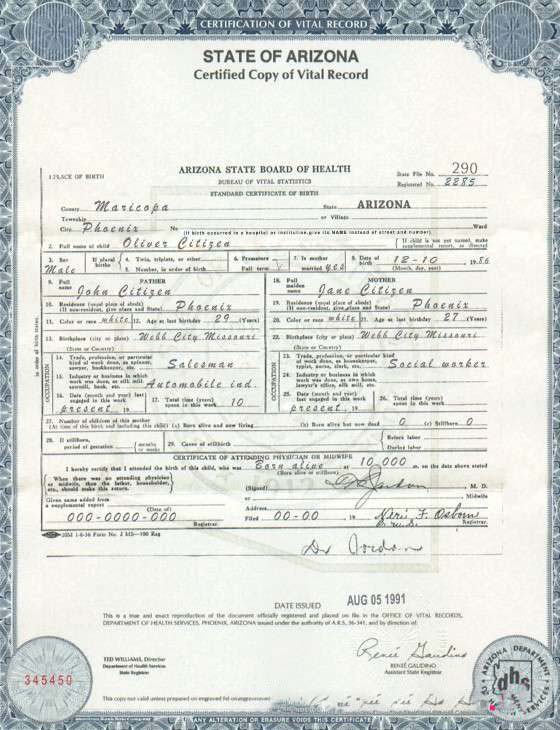 CERTIFICATION OF VITAL RECORD
STATE OF ARIZONA
Certified Copy of Vital Record
ARIZONA STATE BOARD OF HEALTH
BUREAU OF VITAL STATISTICS
STANDARD CERTIFICATE OF BIRTH
1. PLACE OF BIRTH
State File No. 290
Registered No. 2285
County Maricopa State ARIZONA
Township or Village
City Phoenix No Ward
(If birth occurred in a hospital or institution, give its NAME instead of street and number)
2. Full name of child Oliver Citizen
If child is not yet named, make supplemental report, as directed
3. Sex Male If plural births 4. Twin, triplet, or other 5. Number, in order of birth 6. Premature Full term 7. Is mother married yes 8. Date of birth 12-10 1986
(Month, day, year)
9. Full name FATHER John Citizen
10. Residence (usual place of abode) (If non-resident, give place and State) Phoenix
11. Color or race white 12. Age at last birthday 29 (Years)
13. Birthplace (city or place) Webb City Missouri
(State or Country)
OCCUPATION
14. Trade, profession, or particular kind of work done, as spinner, sawyer, bookkeeper, etc. Salesman
15. Industry or business in which work was done, as silk mill, sawmill, bank, etc. Automobile ind.
16. Date (month and year) last engaged in this work present, 19
17. Total time (years) spent in this work 10
18. Full maiden name MOTHER Jane Citizen
19. Residence (usual place of abode) (If non-resident, give place and State) Phoenix
20. Color or race white 21. Age at last birthday 27 (Years)
22. Birthplace (city or place) Webb City Missouri
(State or Country)
OCCUPATION
23. Trade, profession, or particular kind of work done, as housekeeper, typist, nurse, clerk, etc. Social worker
24. Industry or business in which work was done, as own home, lawyer's office, silk mill, etc.
25. Date (month and year) last engaged in this work present, 19
26. Total time (years) spent in this work
27. Number of children of this mother
(At time of this birth, and including this child) (a) Born alive and now living (b) Born alive but now dead 0 (c) Stillborn 0
28. If stillborn, period of gestation months or weeks 29. Cause of stillbirth Before labor During labor
CERTIFICATE OF ATTENDING PHYSICIAN OR MIDWIFE
I hereby certify that I attended the birth of this child, who was Born alive at 10,000 m. on the date above stated
(Born alive or stillborn)
When there was no attending physician or midwife, then the father, householder, etc., should make this return.
(Signed) M. D.
or Midwife
Given name added from a supplemental report
(Date of)
Address
000-0000-000 Registrar.
Filed 00-00, 19 F. Osborn Registrar.
DATE ISSUED AUG 05 1991
This is a true and exact reproduction of the document officially registered and placed on file in the OFFICE OF VITAL RECORDS,
DEPARTMENT OF HEALTH SERVICES, PHOENIX, ARIZONA issued under the authority of A.R.S. 36-341, and by direction of:
TED WILLIAMS, Director
Department of Health Services
State Registrar
Reneé Gaudino
RENEÉ GAUDINO
Assistant State Registrar
345450
This copy not valid unless prepared on engraved
ARIZONA DEPARTMENT
dhs
ANY ALTERATION OR ERASURE VOIDS THIS CERTIFICATE